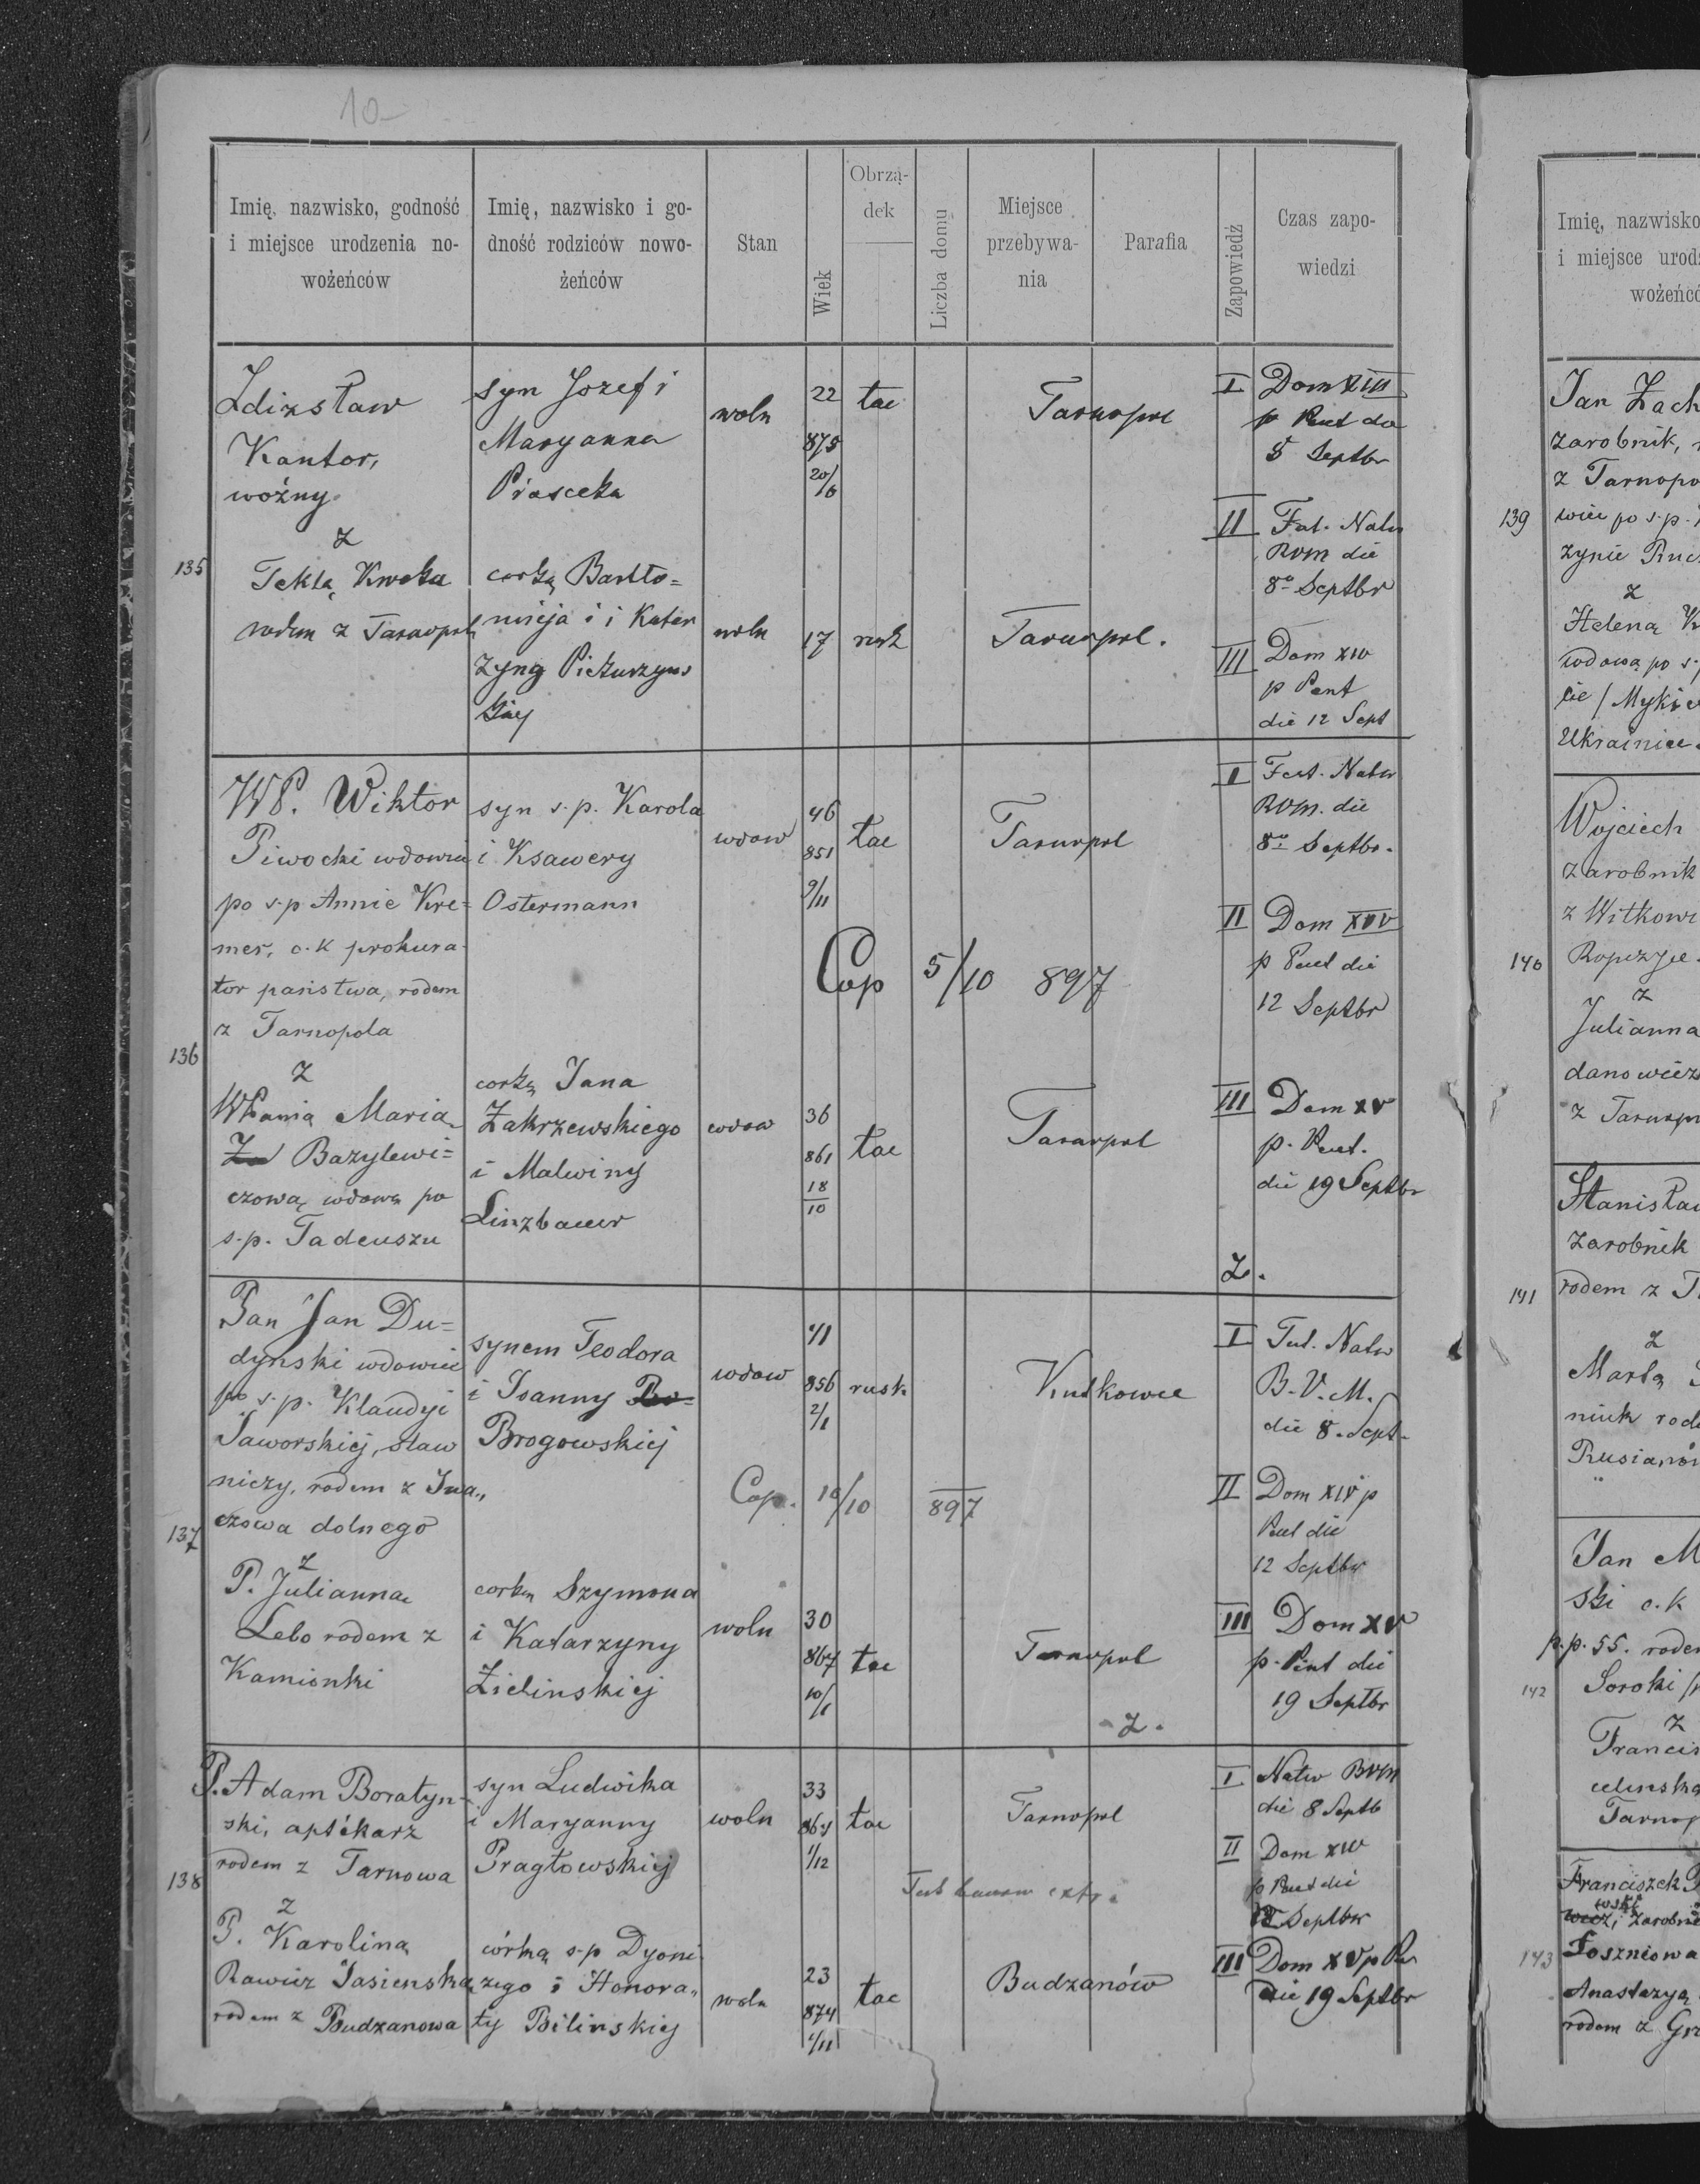 10
Imię, nazwisko, godność i miejsce urodzenia nowożeńców
Imię, nazwisko i godność rodziców nowożeńców
Stan
Wiek
Obrządek
Liczba domu
Miejsce przebywania
Parafia
Zapowiedź
Czas zapowiedzi
135
Zdizsław
Kantor,
woźny
z
Teklą Kweka
rodem z Tarnopola
syn Jozef i
Maryanna
Piasecka
corką Bartło=
mieja i i Katar
zyną
woln
22
875
20/6
łac
Tarnopol
woln
17
rusk
Tarnopol.
I Dom XIII
p Pent da
5 Septbr
II Fest. Natw
BVM die
8º Septbr
III Dom XIV
p Pent
die 12 Sept
136
WP. Wiktor
Piwocki wdowiec
po s.p Annie Kre=
mer, c.k prokura
tor państwa, rodem
z Tarnopola
z
WPanią Maria
Bazylewi=
czową wdową po
s.p. Tadeuszu
syn s.p. Karola
i Ksawery
Ostermann
corką Jana
Zakrzewskiego
i Malwiny
Linzbauer
wdow
46
851
9/11
łac
Tarnopol
Cop 5/10 897
wdow
36
861
18/10
łac
Tarnopol
I Fest. Natw
BVM. die
8º Septbr.
II Dom XIV
p Pent die
12 Septbr
III Dom XV
p. Pent.
die 19 Septbr
Z.
137
Pan Jan Du=
dynski wdowiec
po s.p. Klaudyi
Jaworskiej, staw
niczy, rodem z Iwa„
czowa dolnego
z
P. Julianna
Lebo rodem z
Kamionki
synem Teodora
i Joanny
Brogowskiej
corką Szymona
i Katarzyny
Zielinskiej
wdow
41
856
2/1
rusk
Kutkowce
Cop. 10/10 897
woln
30
867
10/1
łac
Tarnopol
Z.
I Fest. Natw
B.V.M.
die 8. Sept.
II Dom XIV p
Pent die
12 Septbr
III Dom XV
p. Pent die
19 Septbr
138
P. Adam Boratyn
ski, aptékarz
rodem z Tarnowa
z
P. Karolina
Rawicz Jasienska
rodem z Budzanowa
syn Ludwika
i Maryanny
Pragłowskiej
córką s.p Dyoni
zego i Honora„
ty Bilinskiej
woln
33
864
1/12
łac
Tarnopol
woln
23
874
1/11
łac
Budzanów
I Natw BVM
die 8 Septb
II Dom XIV
p Pent die
12 Septbr
III Dom XV p Pen
die 19 Septbr
Imię, nazwisko
i miejsce urod
wożeńc
139
Jan Zach
zarobnik,
z Tarnopo
wiec po s.p.
zynie
z
Heleną
wdową po s.
Ukrainiec
140
Wojciech
zarobnik
z Witkowi
Ropczyce
z
Julianna
danowicz
z Tarnop
141
Stanisław
zarobnik
rodem z T
z
Martą
niuk rod
Rusianów
142
Jan M
ski c.k
p.p. 55. rode
Soroki
z
Francis
Tarnop
143
Franciszek
zarobni
Toszniowa
Anastazyą
rodem z